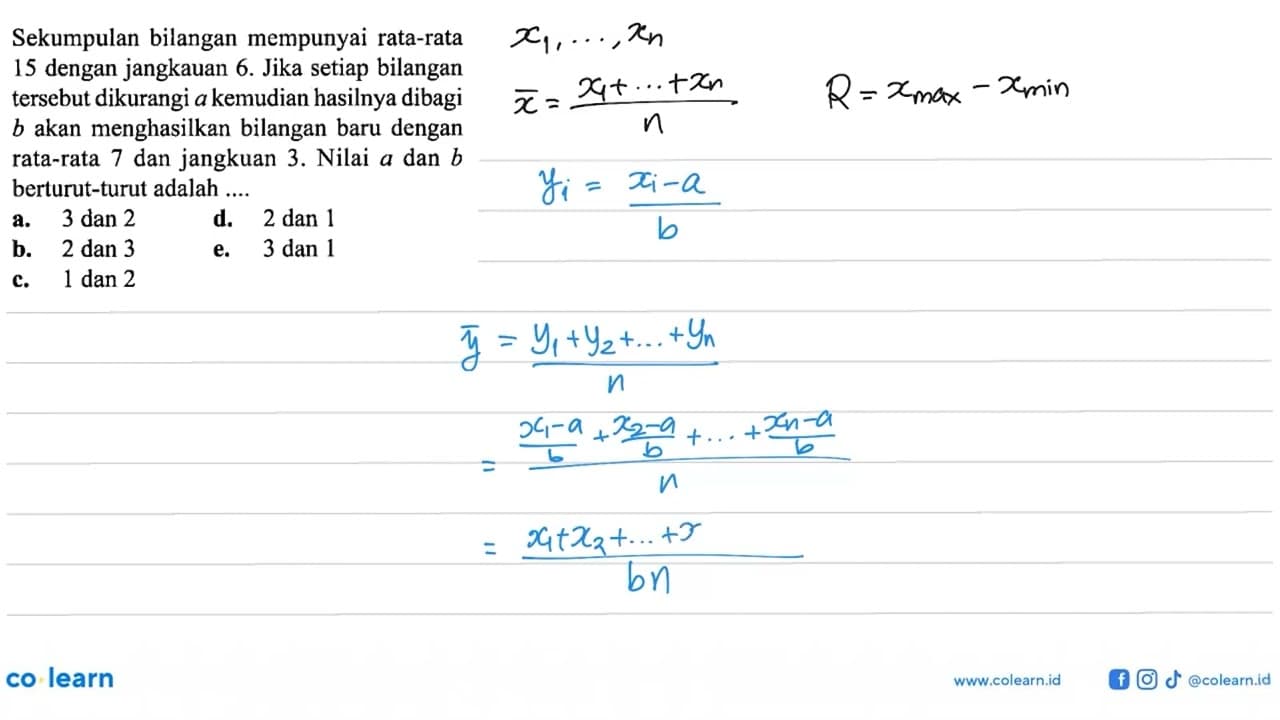 Sekumpulan bilangan mempunyai rata-rata
15 dengan jangkauan 6. Jika setiap bilangan
tersebut dikurangi a kemudian hasilnya dibagi
b akan menghasilkan bilangan baru dengan
rata-rata 7 dan jangkuan 3. Nilai a dan b
berturut-turut adalah ....
a. 3 dan 2 d. 2 dan 1
b. 2 dan 3 e. 3 dan 1
c. 1 dan 2
x₁, ..., xₙ
x̄ = (x₁ + ... + xₙ)/n
R = xmax - xmin
yᵢ = (xᵢ - a)/b
ȳ = (y₁ + y₂ + ... + yₙ)/n
= ((x₁-a)/b + (x₂-a)/b + ... + (xₙ-a)/b)/n
= (x₁ + x₂ + ... + x)/bn
co learn
www.colearn.id @colearn.id